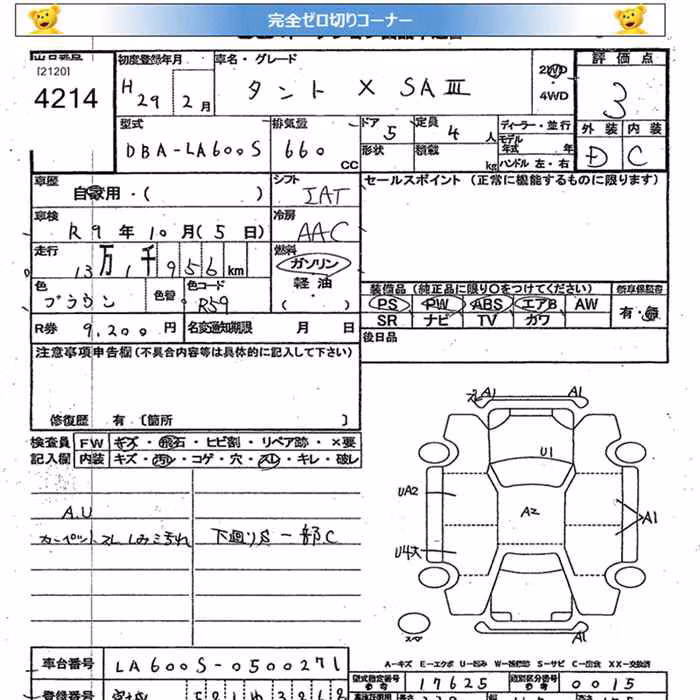 完全ゼロ切りコーナー
[2120]
4214
初度登録年月
H 29 2月
車名・グレード
タント X SAⅢ
2WD
・
4WD
評価点
3
外装 内装
D C
型式
DBA-LA600S
排気量
660 CC
ドア 5
形状
定員 4 人
積載 kg
ディーラー・並行
モデル
年式 年
ハンドル 左・右
車歴
自家用・( )
シフト
IAT
セールスポイント (正常に機能するものに限ります)
車検
R 9 年 10 月(5 日)
冷房
AAC
走行
13万1千956km
燃料
ガソリン
軽油
( )
色
ブラウン
色替
色コード
R59
装備品 (純正品に限り○をつけてください)
PS PW ABS エアB AW
SR ナビ TV カワ
有・無
R券 9,200 円
名変通知期限 月 日
後日品
注意事項申告欄 (不具合内容等は具体的に記入して下さい)
修復歴 有 〔箇所 〕
検査員 FW キズ・飛石・ヒビ割・リペア跡・×要
記入欄 内装 キズ・汚レ・コゲ・穴・スレ・キレ・破レ
A.U
カーペットスレ しみ 汚れ
下廻りS 一部C
A1 A1
U1
UA2
A2
A1
U4大
A1
スペア
A-キズ E-エクボ U-凹み W-補修跡 S-サビ C-腐食 X-交換 XX-交換済
車台番号 LA600S-0500271
型式指定番号 17625
類別区分番号 0015
登録番号